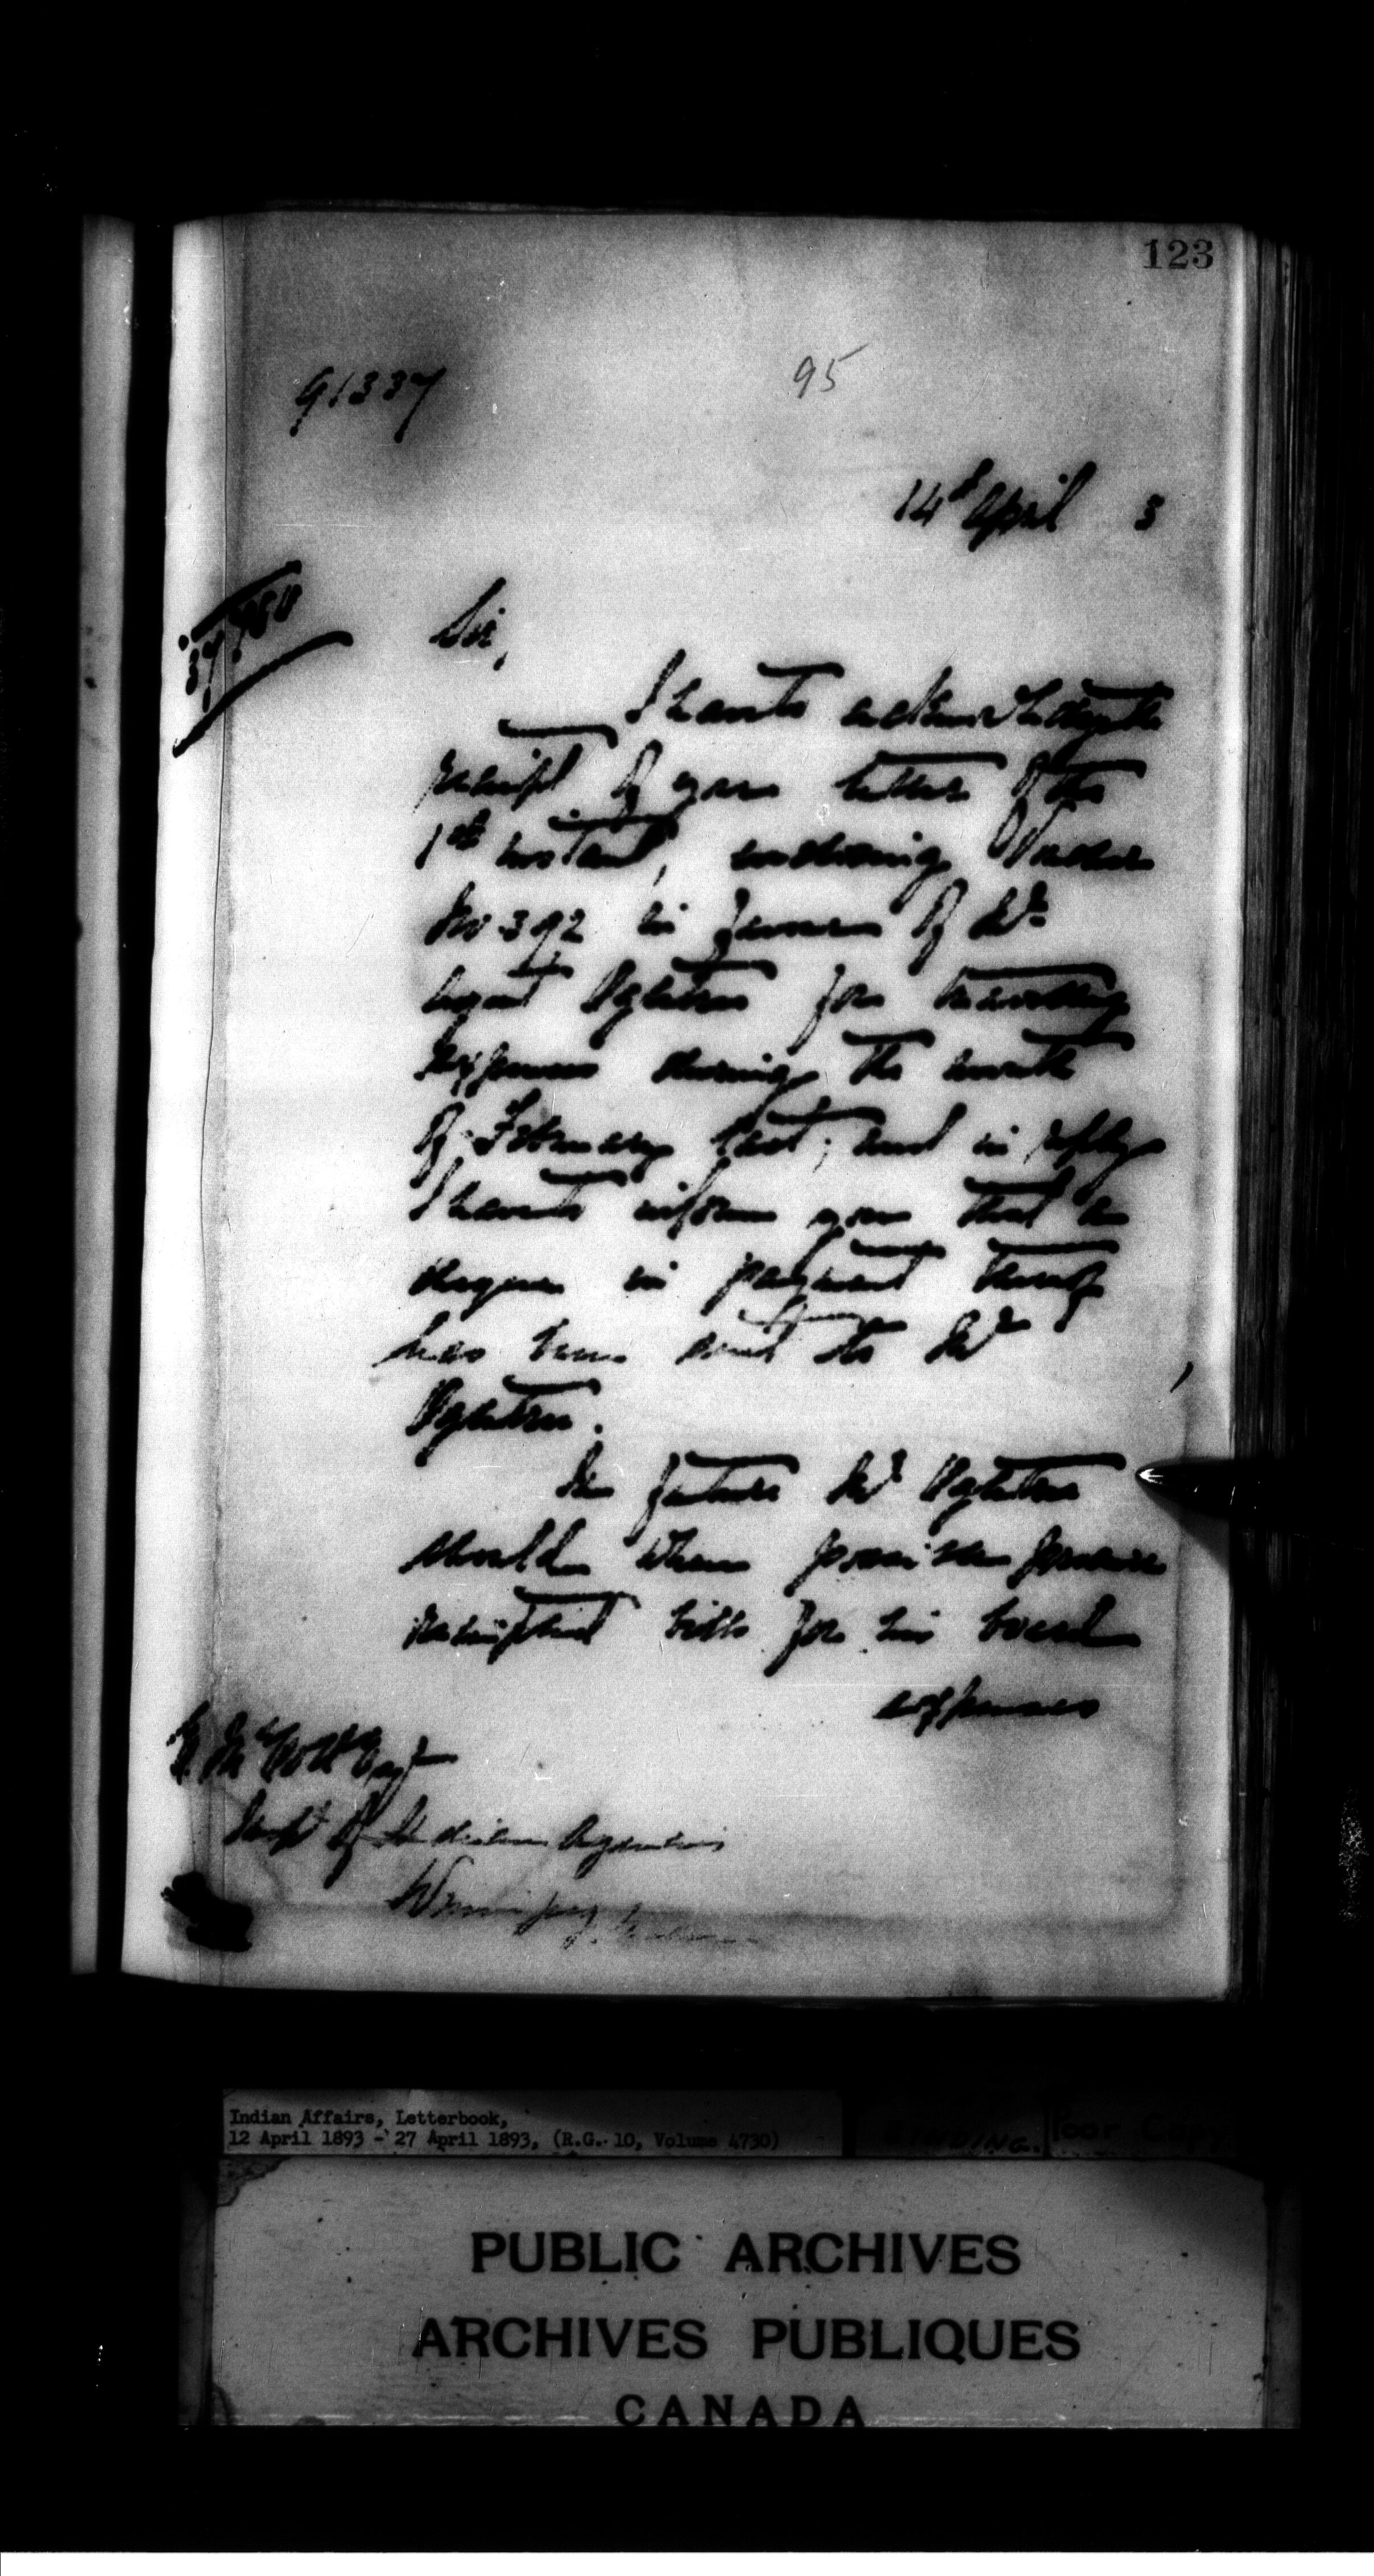 123
95
91337
14th April 3
Sir,
I have to acknowledge the
receipt of your letter of the
1st instant, enclosing Voucher
No 392 in favour of Mr
Agent Ogletree for travelling
expenses during the month
of February last; and in reply
I have to inform you that a
cheque in payment thereof
has been sent to Mr
Ogletree.
In future Mr Ogletree
should when possible furnish
receipted bills for his board
expenses
E. McColl Esq
Supt of Indian Agencies
Winnipeg.
Indian Affairs, Letterbook,
12 April 1893 - 27 April 1893, (R.G. 10, Volume 4730)
BINDING.
Poor Copy
PUBLIC ARCHIVES
ARCHIVES PUBLIQUES
CANADA